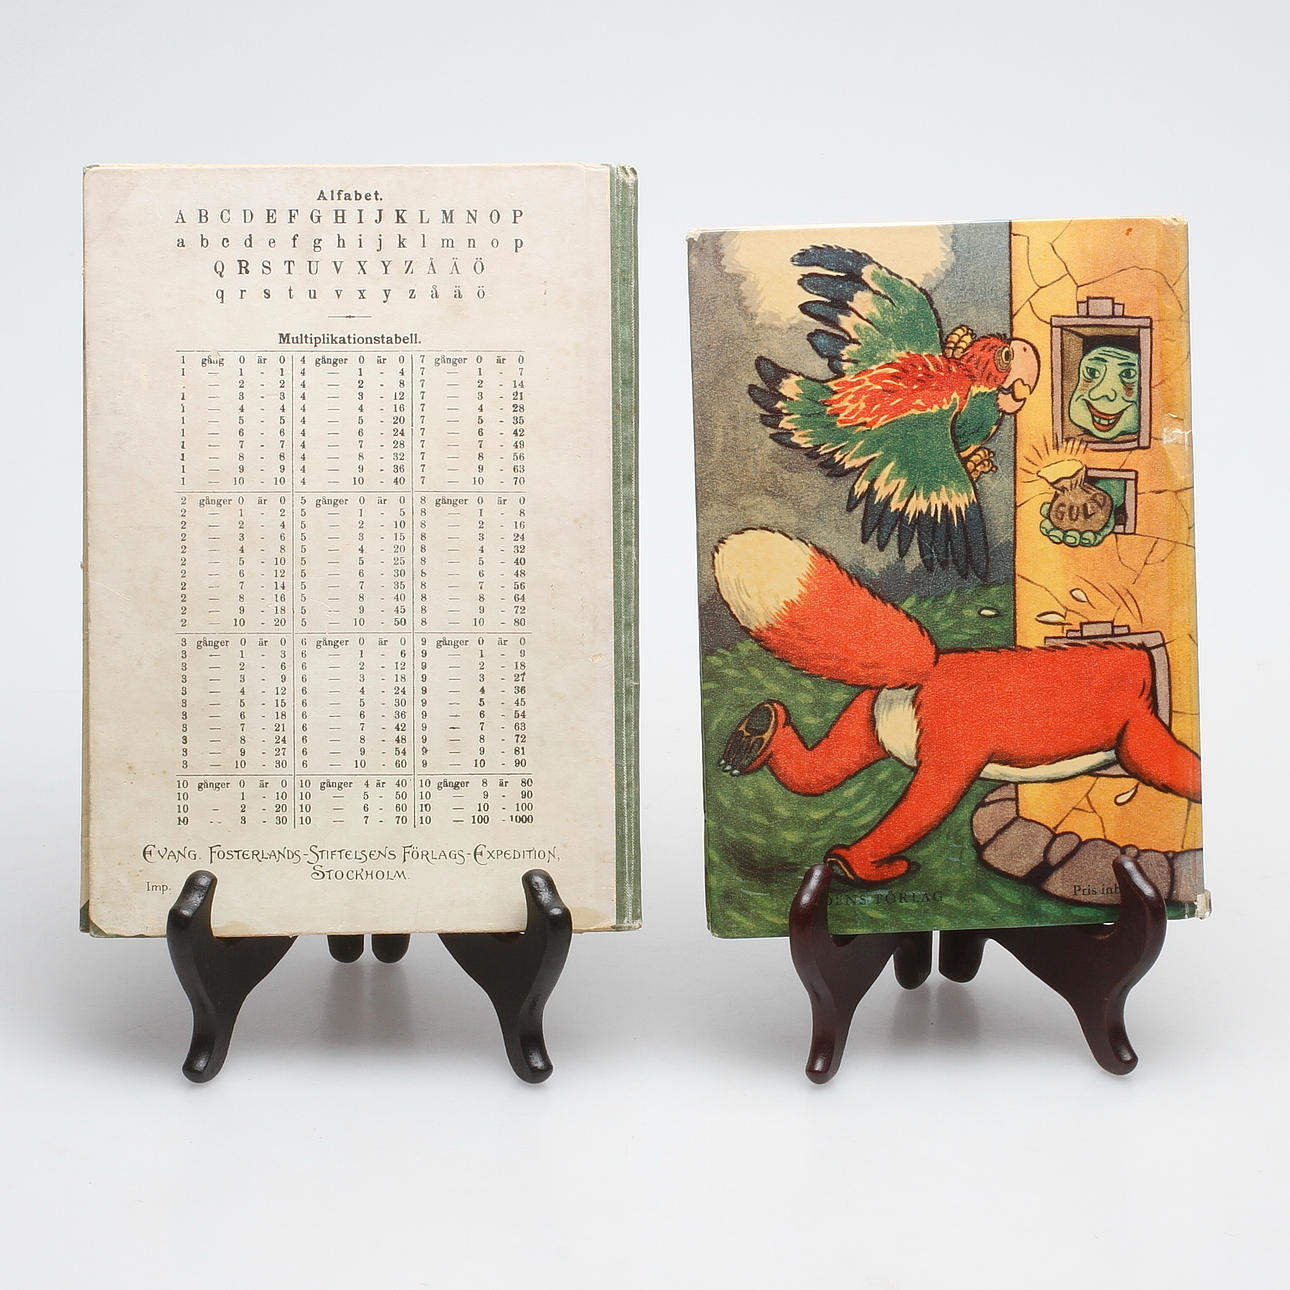 Alfabet.
A B C D E F G H I J K L M N O P
a b c d e f g h i j k l m n o p
Q R S T U V X Y Z Å Ä Ö
q r s t u v x y z å ä ö
Multiplikationstabell.
1 gång 0 är 0 4 gånger 0 är 0 7 gånger 0 är 0
1 — 1 - 1 4 — 1 - 4 7 — 1 - 7
— 2 - 2 4 — 2 - 8 7 — 2 - 14
1 — 3 - 3 4 — 3 - 12 7 — 3 - 21
1 — 4 - 4 4 — 4 - 16 7 — 4 - 28
1 — 5 - 5 4 — 5 - 20 7 — 5 - 35
1 — 6 - 6 4 — 6 - 24 7 — 6 - 42
1 — 7 - 7 4 — 7 - 28 7 — 7 - 49
1 — 8 - 8 4 — 8 - 32 7 — 8 - 56
1 — 9 - 9 4 — 9 - 36 7 — 9 - 63
1 — 10 - 10 4 — 10 - 40 7 — 10 - 70
2 gånger 0 är 0 5 gånger 0 är 0 8 gånger 0 är 0
2 — 1 - 2 5 — 1 - 5 8 — 1 - 8
2 — 2 - 4 5 — 2 - 10 8 — 2 - 16
2 — 3 - 6 5 — 3 - 15 8 — 3 - 24
2 — 4 - 8 5 — 4 - 20 8 — 4 - 32
2 — 5 - 10 5 — 5 - 25 8 — 5 - 40
2 — 6 - 12 5 — 6 - 30 8 — 6 - 48
2 — 7 - 14 5 — 7 - 35 8 — 7 - 56
2 — 8 - 16 5 — 8 - 40 8 — 8 - 64
2 — 9 - 18 5 — 9 - 45 8 — 9 - 72
2 — 10 - 20 5 — 10 - 50 8 — 10 - 80
3 gånger 0 är 0 6 gånger 0 är 0 9 gånger 0 är 0
3 — 1 - 3 6 — 1 - 6 9 — 1 - 9
3 — 2 - 6 6 — 2 - 12 9 — 2 - 18
3 — 3 - 9 6 — 3 - 18 9 — 3 - 27
3 — 4 - 12 6 — 4 - 24 9 — 4 - 36
3 — 5 - 15 6 — 5 - 30 9 — 5 - 45
3 — 6 - 18 6 — 6 - 36 9 — 6 - 54
3 — 7 - 21 6 — 7 - 42 9 — 7 - 63
3 — 8 - 24 6 — 8 - 48 9 — 8 - 72
3 — 9 - 27 6 — 9 - 54 9 — 9 - 81
3 — 10 - 30 6 — 10 - 60 9 — 10 - 90
10 gånger 0 är 0 10 gånger 4 är 40 10 gånger 8 är 80
10 — 1 - 10 10 — 5 - 50 10 — 9 - 90
10 - 2 - 20 10 — 6 - 60 10 — 10 - 100
10 - 3 - 30 10 — 7 - 70 10 — 100 - 1000
EVANG. FOSTERLANDS-STIFTELSENS FÖRLAGS-EXPEDITION,
STOCKHOLM.
Imp.
GULD
FÖRLAG
Pris